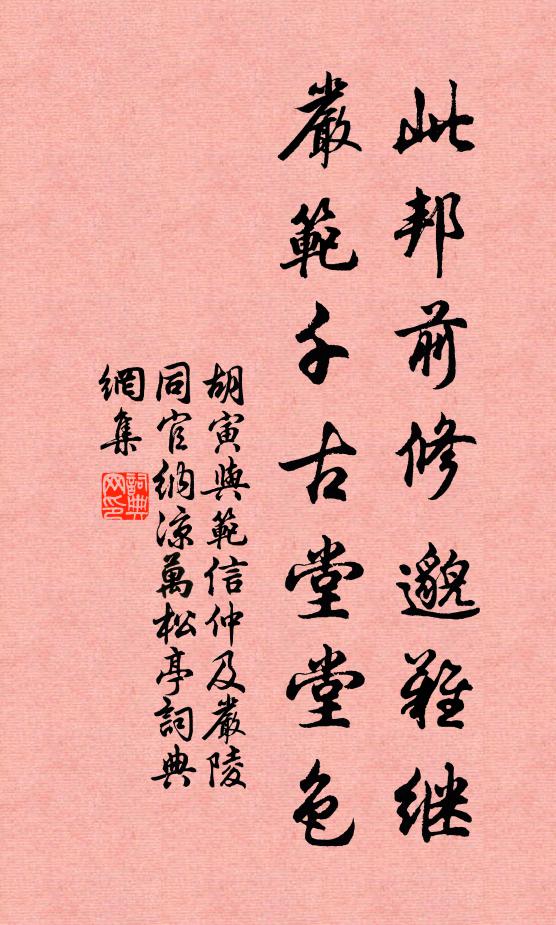 此邦前修邈難继
嚴範千古堂堂色
胡寅與範信仲及嚴陵
同官纳凉萬松亭詞典
網集
詞典網印